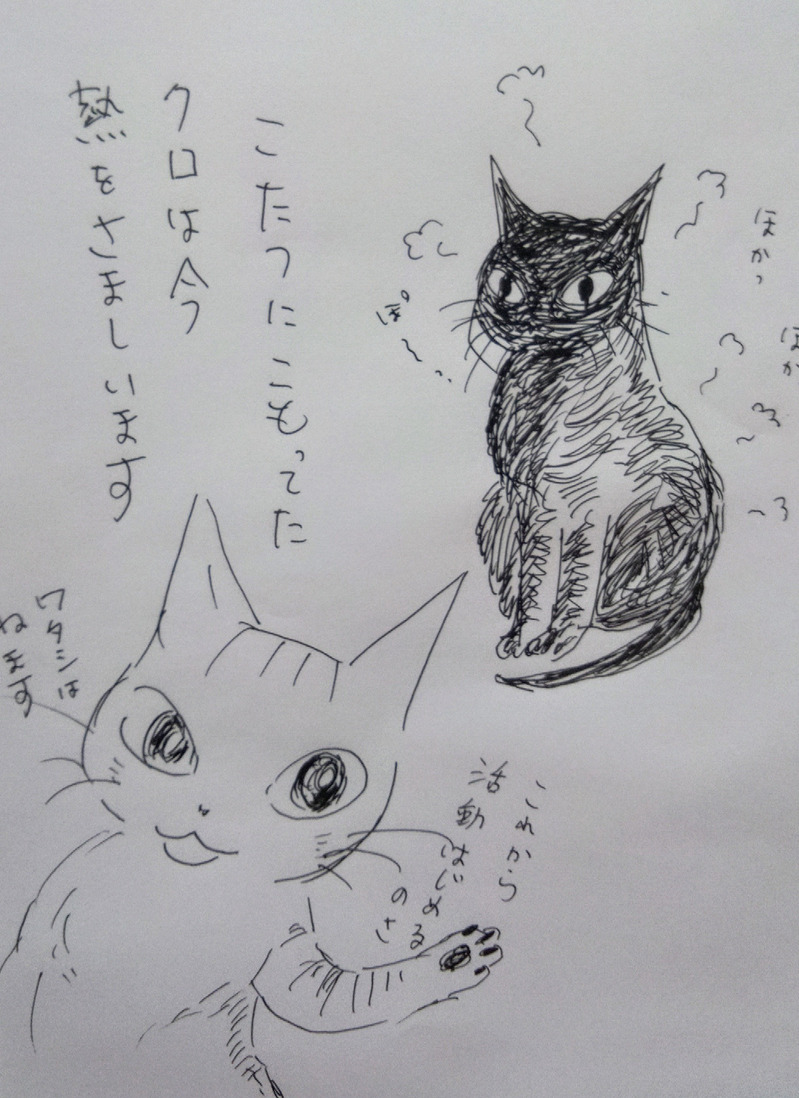 こたつにこもってた
クロは今
熱をさましいます
ほかっ
ほか
ぽ〜
ワタシは
ねます
これから
活動はじめる
のさ